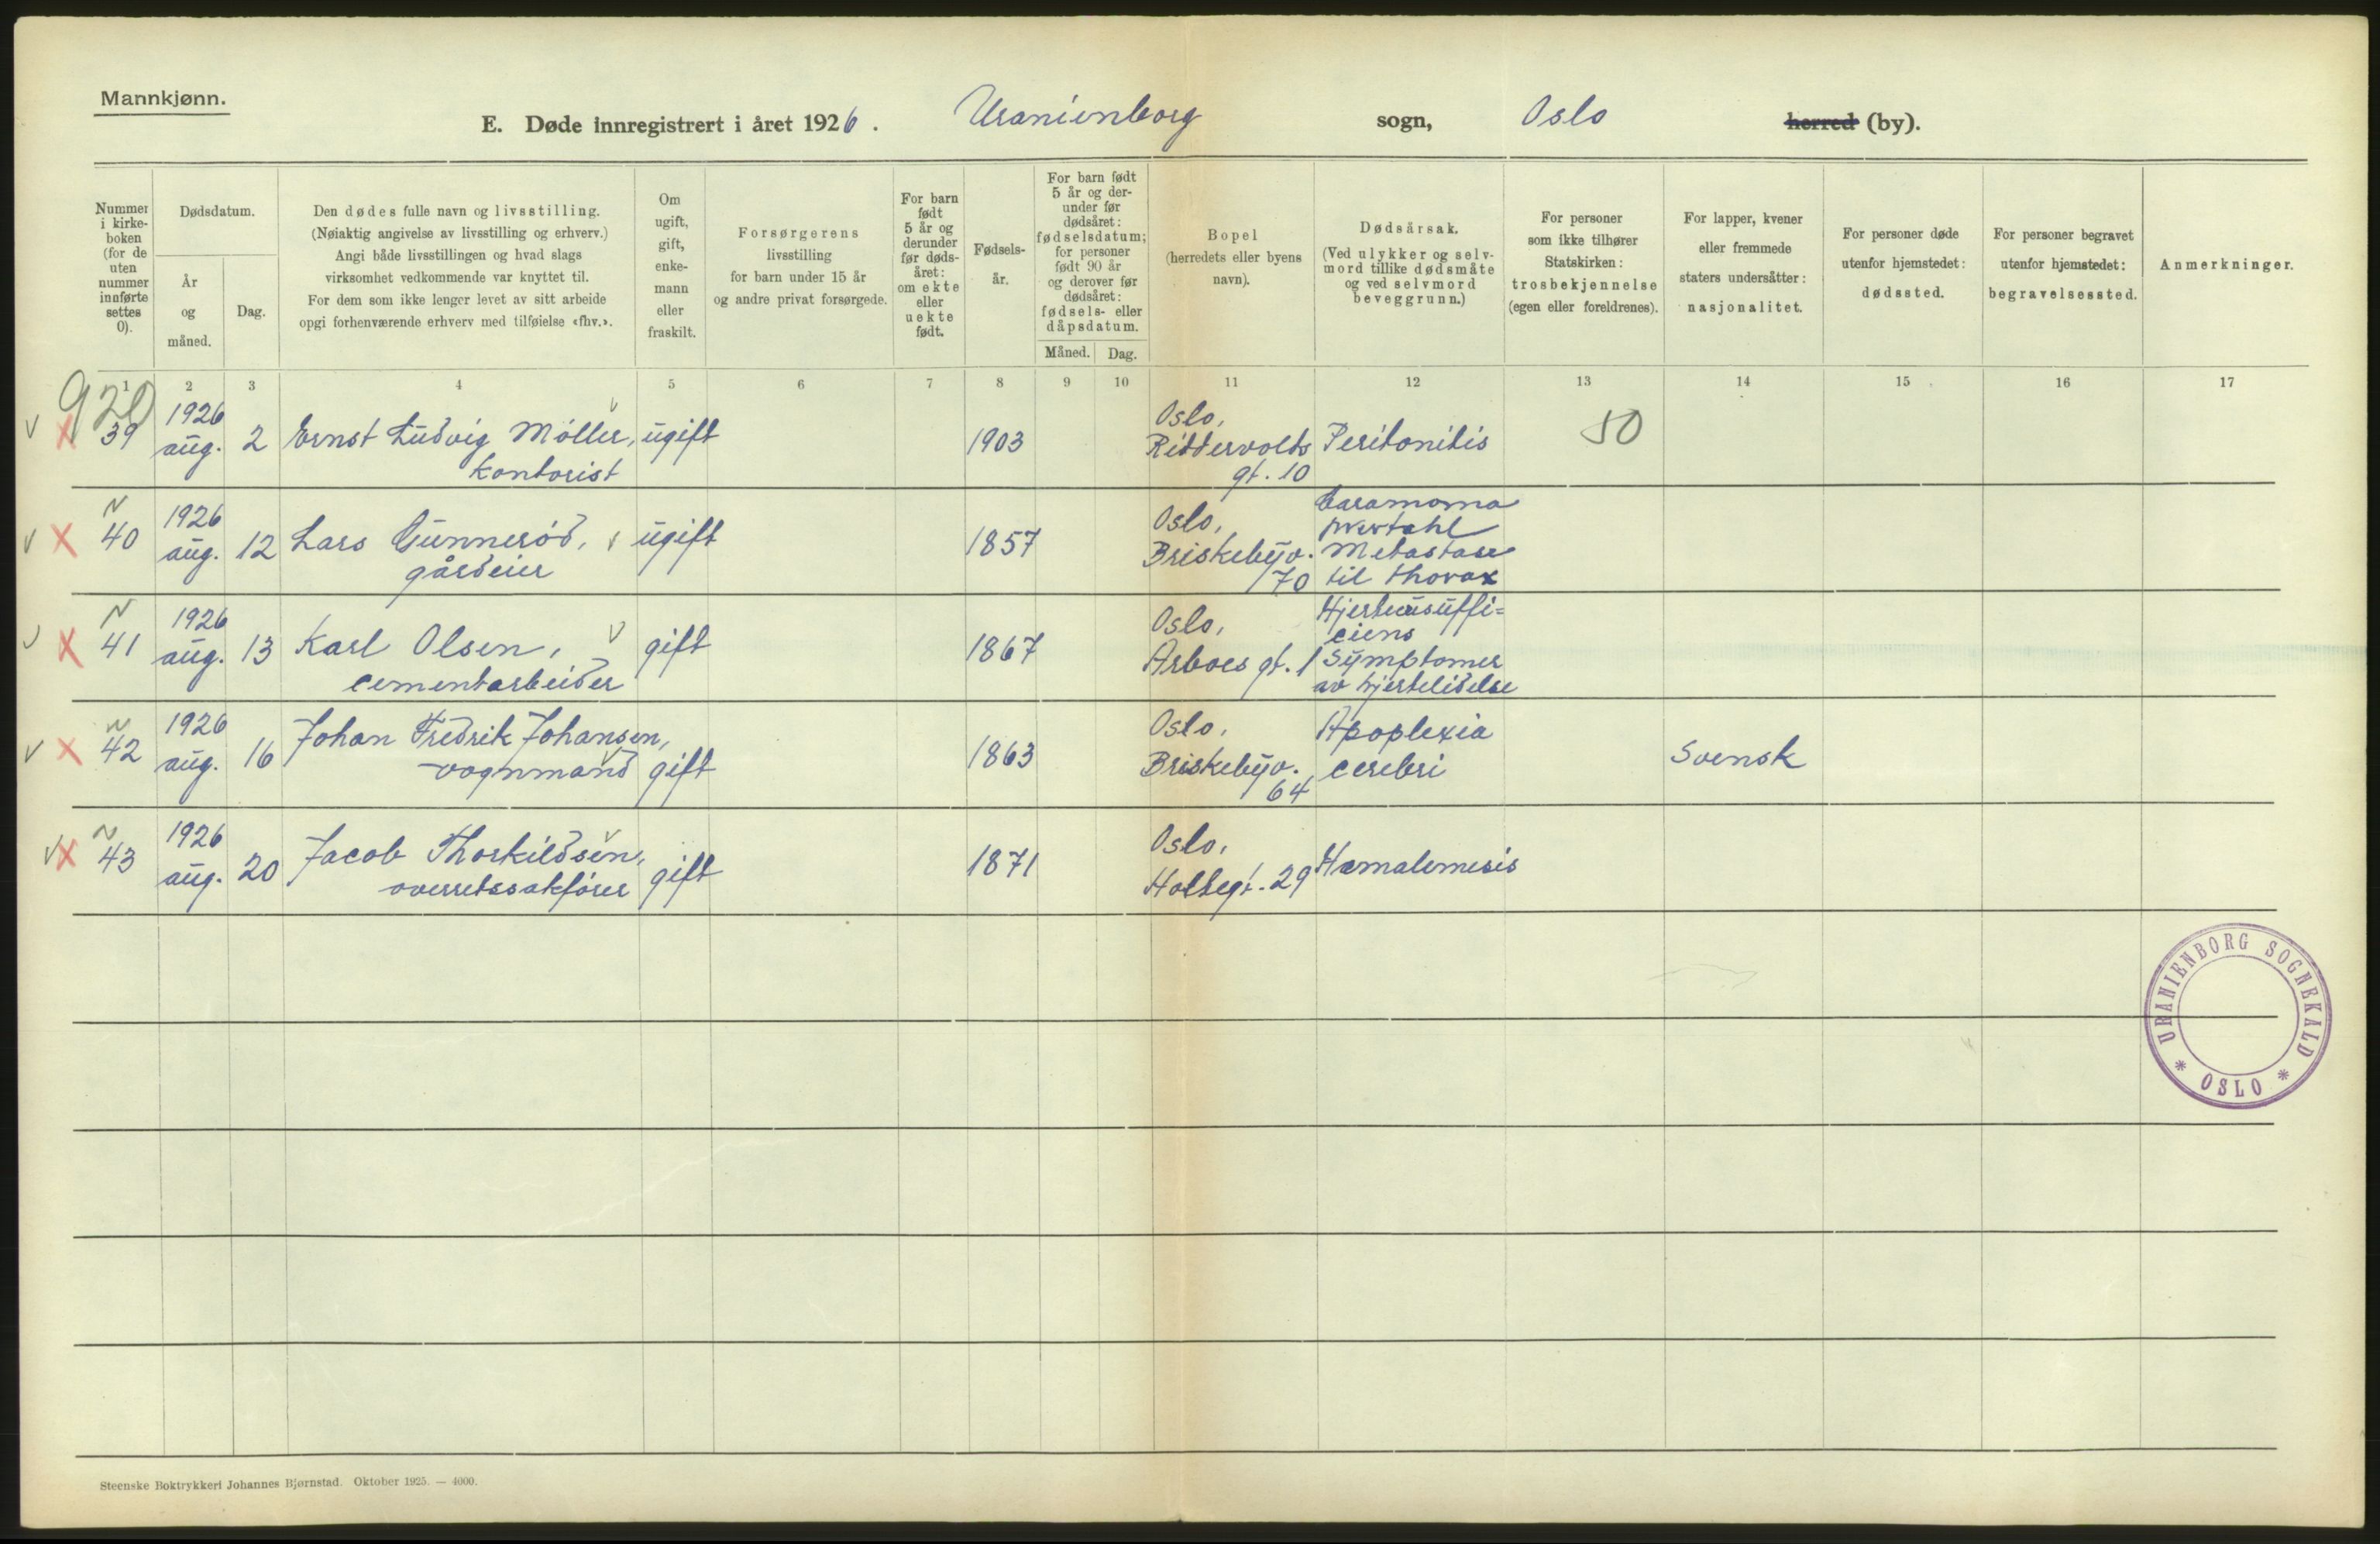 Mannkjønn.
E. Døde innregistrert i året 1926. Uranienborg sogn, Oslo herred (by).
Nummer i kirke-boken (for de uten nummer innførte settes 0).
Dødsdatum.
År og måned.
Dag.
Den dødes fulle navn og livsstilling.
(Nøiaktig angivelse av livsstilling og erhverv.)
Angi både livsstillingen og hvad slags
virksomhet vedkommende var knyttet til.
For dem som ikke lenger levet av sitt arbeide
opgi forhenværende erhverv med tilføielse «fhv.».
Om ugift, gift, enke-mann eller fraskilt.
Forsørgerens
livsstilling
for barn under 15 år
og andre privat forsørgede.
For barn født 5 år og derunder før døds-året: om ekte eller uekte født.
Fødsels-år.
For barn født 5 år og der-under før dødsåret: fødselsdatum; for personer født 90 år og derover før dødsåret: fødsels- eller dåpsdatum.
Måned. Dag.
Bopel
(herredets eller byens
navn).
Dødsårsak.
(Ved ulykker og selv-
mord tillike dødsmåte
og ved selvmord
beveggrunn.)
For personer
som ikke tilhører
Statskirken:
trosbekjennelse
(egen eller foreldrenes).
For lapper, kvener
eller fremmede
staters undersåtter:
nasjonalitet.
For personer døde
utenfor hjemstedet:
dødssted.
For personer begravet
utenfor hjemstedet:
begravelsessted.
Anmerkninger.
1 2 3 4 5 6 7 8 9 10 11 12 13 14 15 16 17
920
39 1926 aug. 2 Ernst Ludvig Møller, kontorist ugift 1903 Oslo, Riddervolds gt. 10 Peritonitis 50
40 1926 aug. 12 Lars Gunnerød, gårdeier ugift 1857 Oslo, Briskebyv. 70 Metastase til thorax
41 1926 aug. 13 Karl Olsen, cementarbeider gift 1867 Oslo, Arboes gt. 1 Symptomer av hjertelidelse
42 1926 aug. 16 Johan Fredrik Johansen, vognmand gift 1863 Oslo, Briskebyv. 64 Apoplexia cerebri Svensk
43 1926 aug. 20 Jacob Thorkildsen, overretssakfører gift 1871 Oslo, Holtegt. 29 Hæmatemesis
URANIENBORG SOGNEKALD
* OSLO *
Steenske Boktrykkeri Johannes Bjørnstad. Oktober 1925. — 4000.